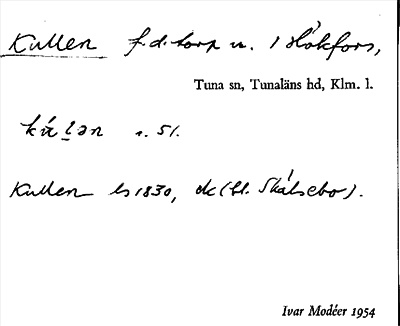 Kullen f.d. torp u. Hökfors,
Tuna sn, Tunaläns hd, Klm. l.
s. 51.
Kullen hs 1830, dc (bl. Skälsebo).
Ivar Modéer 1954